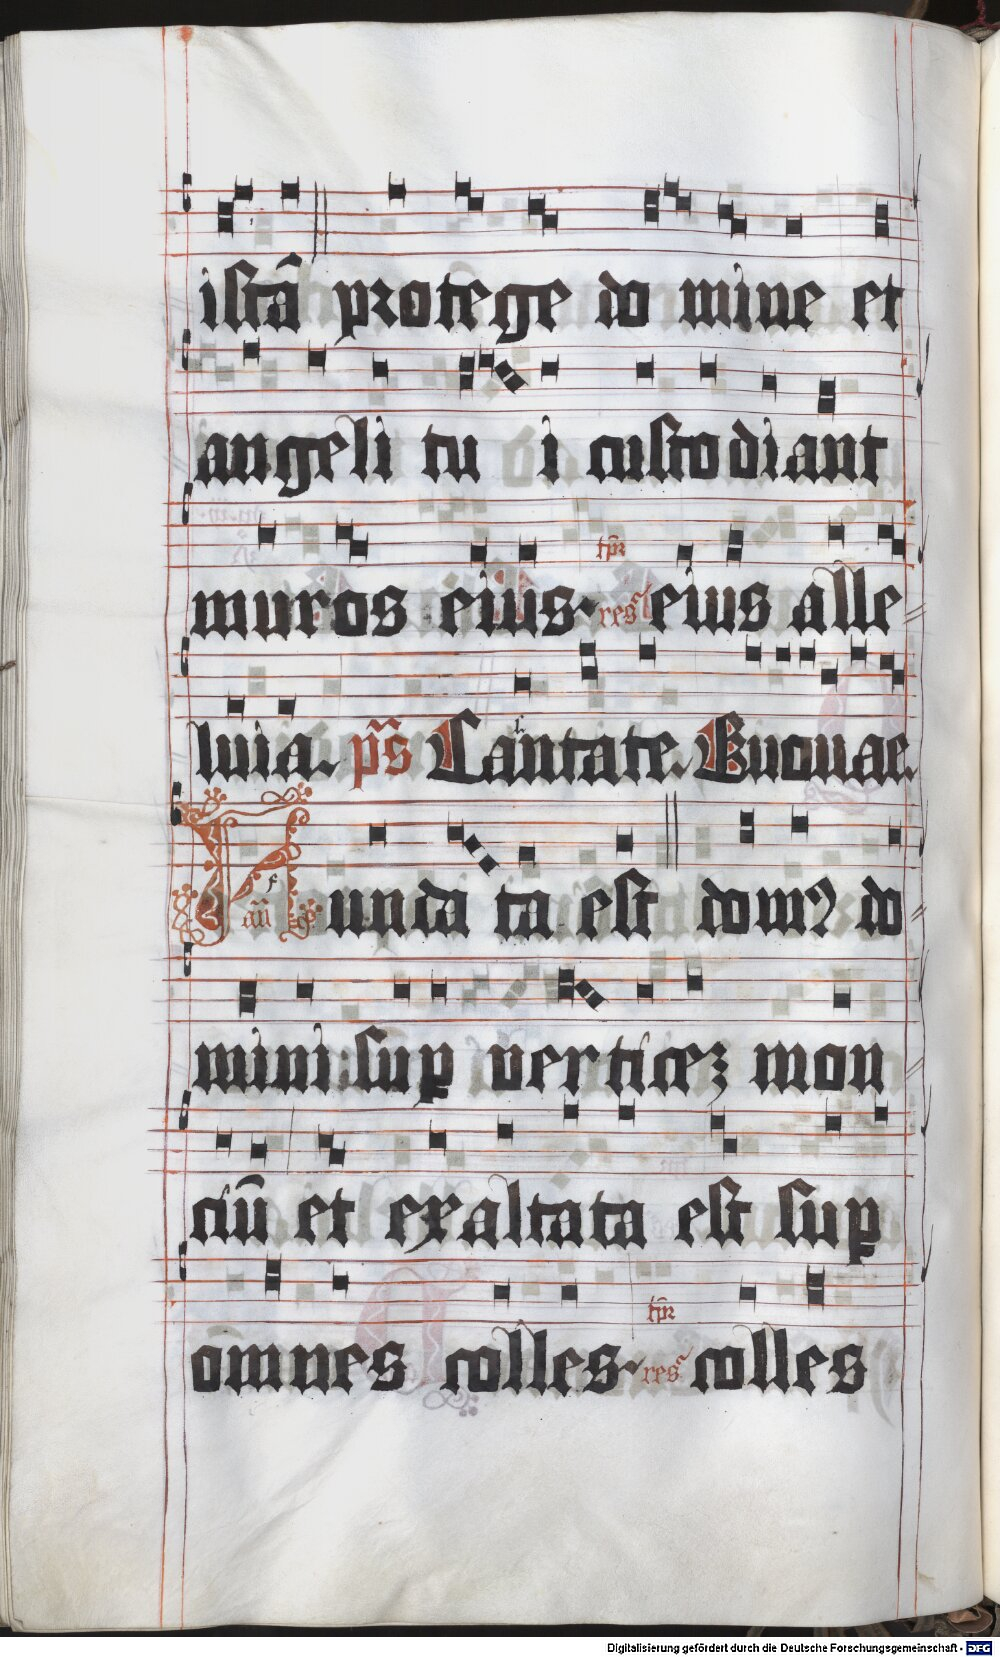 istā protege do mine et
angeli tu i custodiant
muros eius· tp̄r res eius alle
luia. p̄s Cantate. Euouae.
F an̄ unda ta est domꝰ do
mini: suꝑ verticeꝫ mon
ciū et exaltata est suꝑ
om̄nes colles· tp̄r res colles
Digitalisierung gefördert durch die Deutsche Forschungsgemeinschaft - DFG